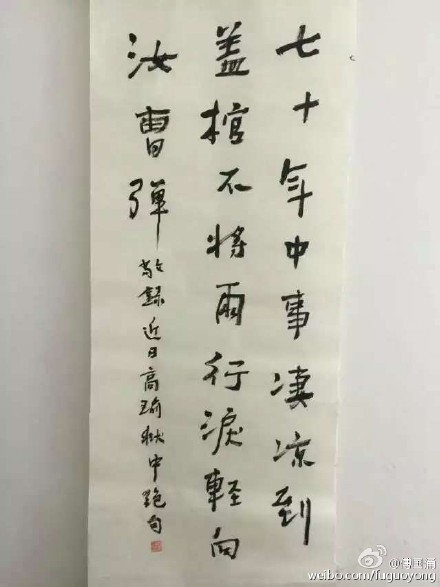 七十年中事凄凉到
盖棺不将兩行淚輕向
汝曹弹
敬録近日高瑜狱中绝句
@傅国涌
weibo.com/fuguoyong